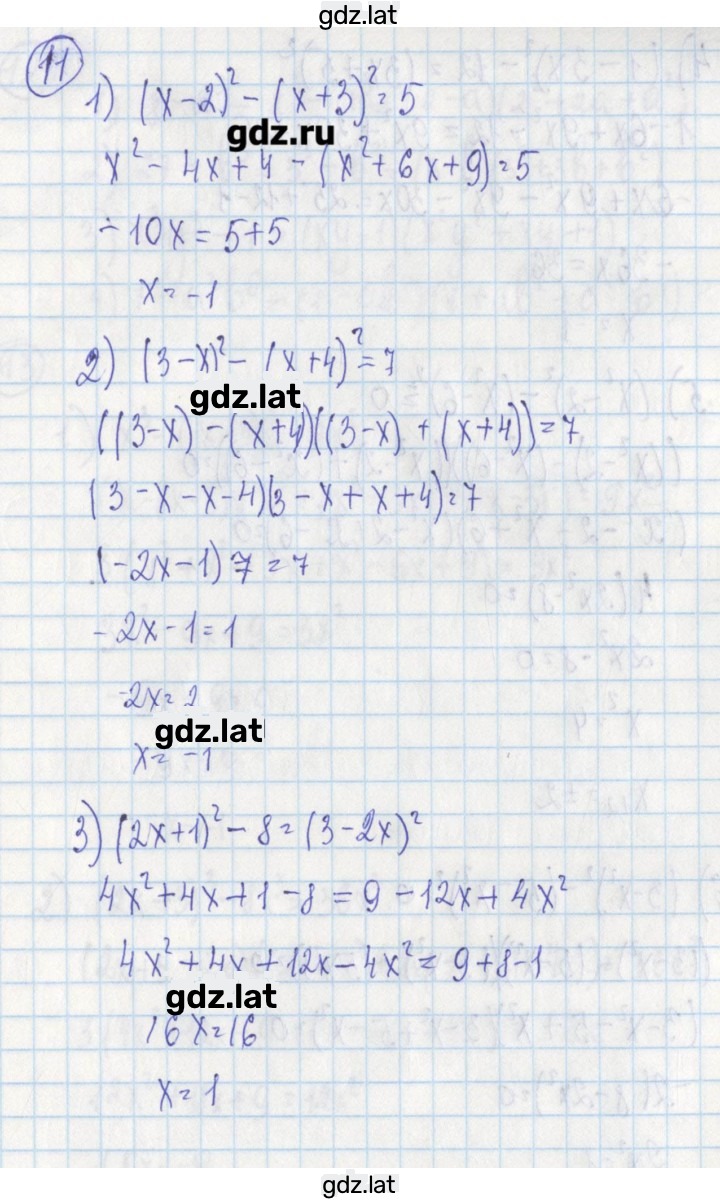 gdz.lat
11
1) (x-2)² - (x+3)² = 5
gdz.ru
x² - 4x + 4 - (x² + 6x + 9) = 5
- 10x = 5+5
x = -1
2) (3-x)² - (x+4)² = 7
gdz.lat
((3-x) - (x+4)((3-x) + (x+4)) = 7
(3 - x - x - 4)(3 - x + x + 4) = 7
(-2x-1) 7 = 7
-2x-1 = 1
-2x = 2
gdz.lat
x = -1
3) (2x+1)² - 8 = (3-2x)²
4x² + 4x + 1 - 8 = 9 - 12x + 4x²
4x² + 4x + 12x - 4x² = 9+8-1
gdz.lat
16x = 16
x = 1
gdz.lat